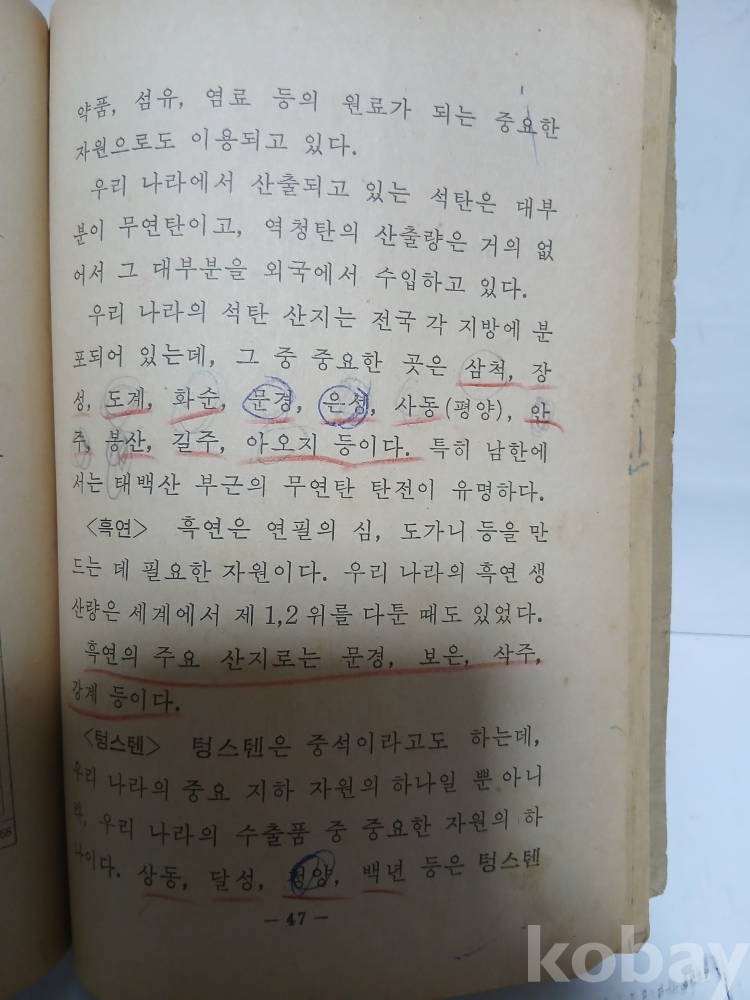 약품, 섬유, 염료 등의 원료가 되는 중요한
자원으로도 이용되고 있다.
우리 나라에서 산출되고 있는 석탄은 대부
분이 무연탄이고, 역청탄의 산출량은 거의 없
어서 그 대부분을 외국에서 수입하고 있다.
우리 나라의 석탄 산지는 전국 각 지방에 분
포되어 있는데, 그 중 중요한 곳은 삼척, 장
성, 도계, 화순, 문경, 은성, 사동(평양), 안
주, 봉산, 길주, 아오지 등이다. 특히 남한에
서는 태백산 부근의 무연탄 탄전이 유명하다.
〈흑연〉 흑연은 연필의 심, 도가니 등을 만
드는 데 필요한 자원이다. 우리 나라의 흑연 생
산량은 세계에서 제 1,2 위를 다툰 때도 있었다.
흑연의 주요 산지로는 문경, 보은, 삭주,
강계 등이다.
〈텅스텐〉 텅스텐은 중석이라고도 하는데,
우리 나라의 중요 지하 자원의 하나일 뿐 아니
라, 우리 나라의 수출품 중 중요한 자원의 하
나이다. 상동, 달성, 청양, 백년 등은 텅스텐
— 47 —
kobay